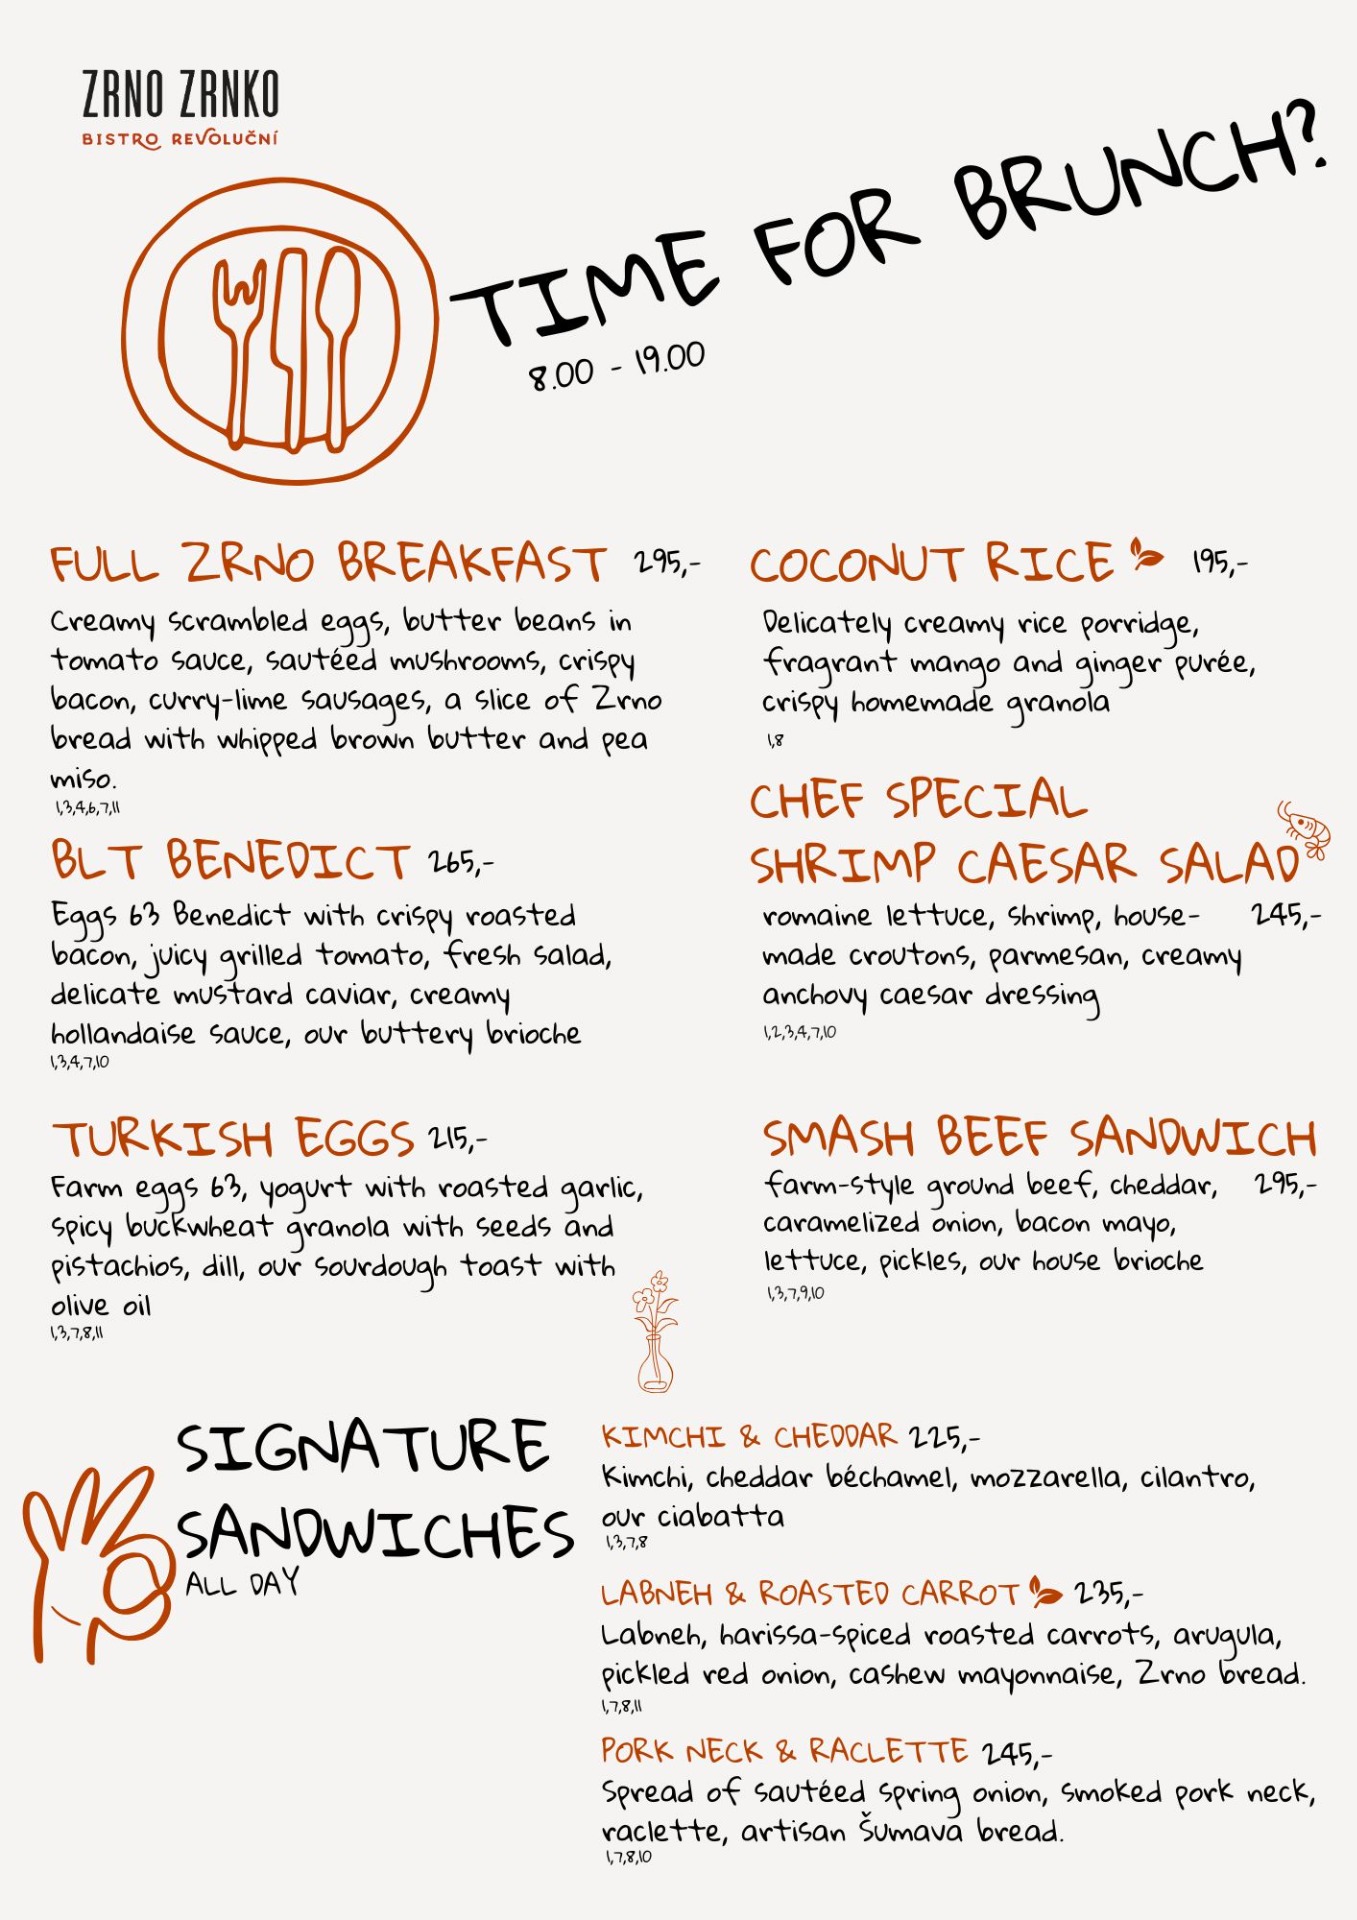 ZRNO ZRNKO
BISTRO REVOLUČNÍ
TIME FOR BRUNCH?
8.00 - 19.00
FULL ZRNO BREAKFAST 295,-
Creamy scrambled eggs, butter beans in
tomato sauce, sautéed mushrooms, crispy
bacon, curry-lime sausages, a slice of Zrno
bread with whipped brown butter and pea
miso.
1,3,4,6,7,11
BLT BENEDICT 265,-
Eggs 63 Benedict with crispy roasted
bacon, juicy grilled tomato, fresh salad,
delicate mustard caviar, creamy
hollandaise sauce, our buttery brioche
1,3,4,7,10
TURKISH EGGS 215,-
Farm eggs 63, yogurt with roasted garlic,
spicy buckwheat granola with seeds and
pistachios, dill, our sourdough toast with
olive oil
1,3,7,8,11
COCONUT RICE 195,-
Delicately creamy rice porridge,
fragrant mango and ginger purée,
crispy homemade granola
1,8
CHEF SPECIAL
SHRIMP CAESAR SALAD
romaine lettuce, shrimp, house- 245,-
made croutons, parmesan, creamy
anchovy caesar dressing
1,2,3,4,7,10
SMASH BEEF SANDWICH
farm-style ground beef, cheddar, 295,-
caramelized onion, bacon mayo,
lettuce, pickles, our house brioche
1,3,7,9,10
SIGNATURE
SANDWICHES
ALL DAY
KIMCHI & CHEDDAR 225,-
Kimchi, cheddar béchamel, mozzarella, cilantro,
our ciabatta
1,3,7,8
LABNEH & ROASTED CARROT 235,-
Labneh, harissa-spiced roasted carrots, arugula,
pickled red onion, cashew mayonnaise, Zrno bread.
1,7,8,11
PORK NECK & RACLETTE 245,-
Spread of sautéed spring onion, smoked pork neck,
raclette, artisan Šumava bread.
1,7,8,10